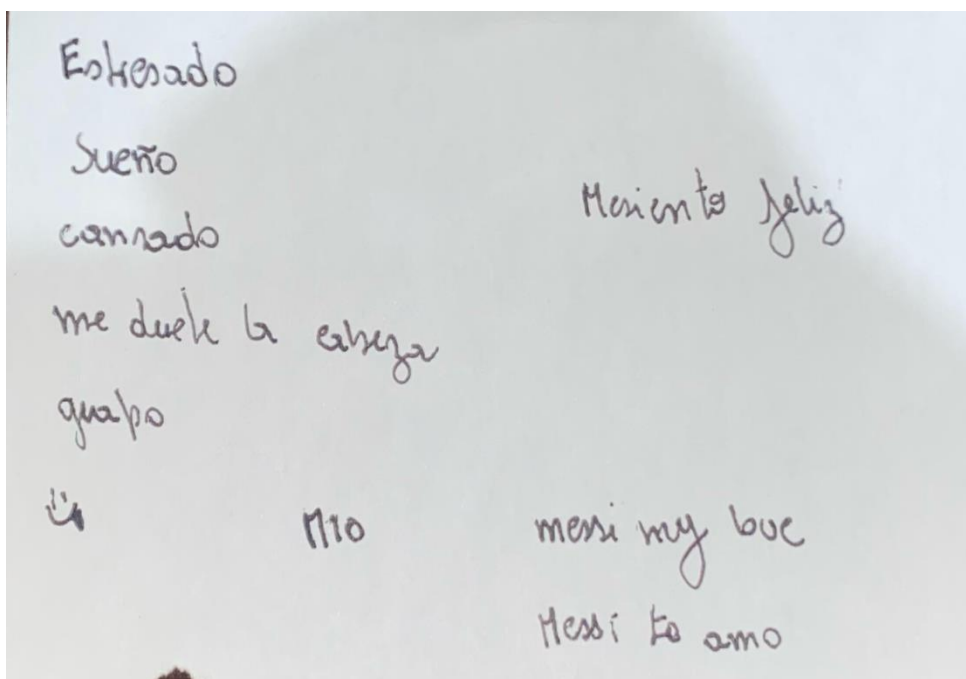 Estresado
Sueño
cansado
Mesiento feliz
me duele la cabeza
guapo
M10
messi my love
Messi te amo